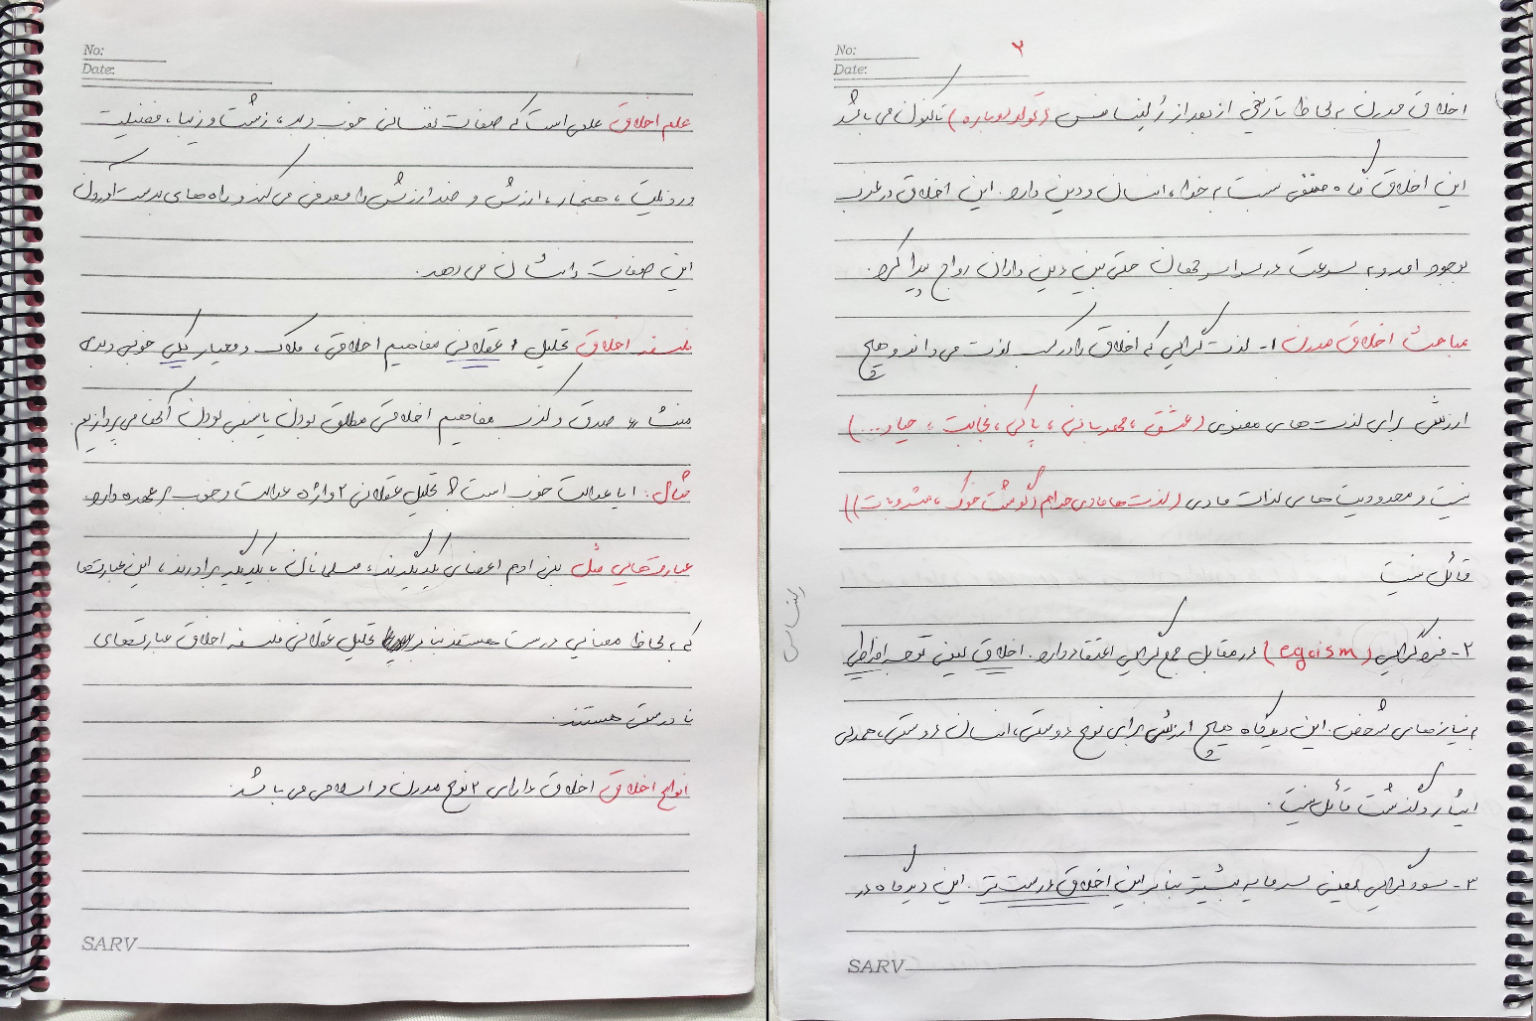 No:
Date:
علم اخلاق علمی است که صفات نفسانی خوب و بد، زشت و زیبا، فضیلت
و رذیلت، هنجار، ارزش و ضد ارزش را معرفی می‌کند و راه‌های بدست آوردن
این صفات را نشان می دهد.
فلسفه اخلاق تحلیل عقلانی مفاهیم اخلاقی، ملاک و معیار کلی خوبی و بدی
منشاء صدق و کذب مفاهیم اخلاقی مطلق بودن یا نسبی بودن آنها می‌پردازیم.
مثال: ایا عدالت خوب است؟ تحلیل عقلانی ۲ واژه عدالت و خوب بر عهده دارد
عبارت‌هایی مثل بنی ادم اعضای یکدیگرند، مسلمانان با یکدیگر برادرند، این عبارت‌ها
که به لحاظ معنایی درست هستند بنابر تحلیل عقلانی فلسفه اخلاق عبارت‌های
نادرستی هستند.
انواع اخلاق اخلاق دارای ۲ نوع مدرن و اسلامی می باشد.
SARV
No:
۲
Date:
اخلاق مدرن به لحاظ تاریخی از بعد از رنسانس (تولد دوباره) تاکنون می باشد
این اخلاق نگاه منفی نسبت به خدا، انسان و دین دارد. این اخلاق در غرب
بوجود امد و به سرعت در سراسر جهان حتی بین دین داران رواج پیدا کرد.
مباحث اخلاق مدرن ۱- لذت گرایی که اخلاق را درک لذت می داند و هیچ
ارزشی برای لذت های معنوی (عشق، مهربانی، پاکی، نجابت، حیا و...)
نیست و محدودیت های لذات مادی (لذت ها مادی حرام (گوشت خوک، مشروبات))
قائل نیست
رنسانس
۲- فردگرایی (egoism) در مقابل جمع گرایی اعتقاد دارد. اخلاق یعنی توجه افراطی
به نیازهای شخصی. این دیدگاه هیچ ارزشی برای نوع دوستی، انسان دوستی، همدلی
ایثار و گذشت قائل نیست.
۳- سودگرایی یعنی سرمایه بیشتر بنابراین اخلاق درست تر. این دیدگاه در
SARV